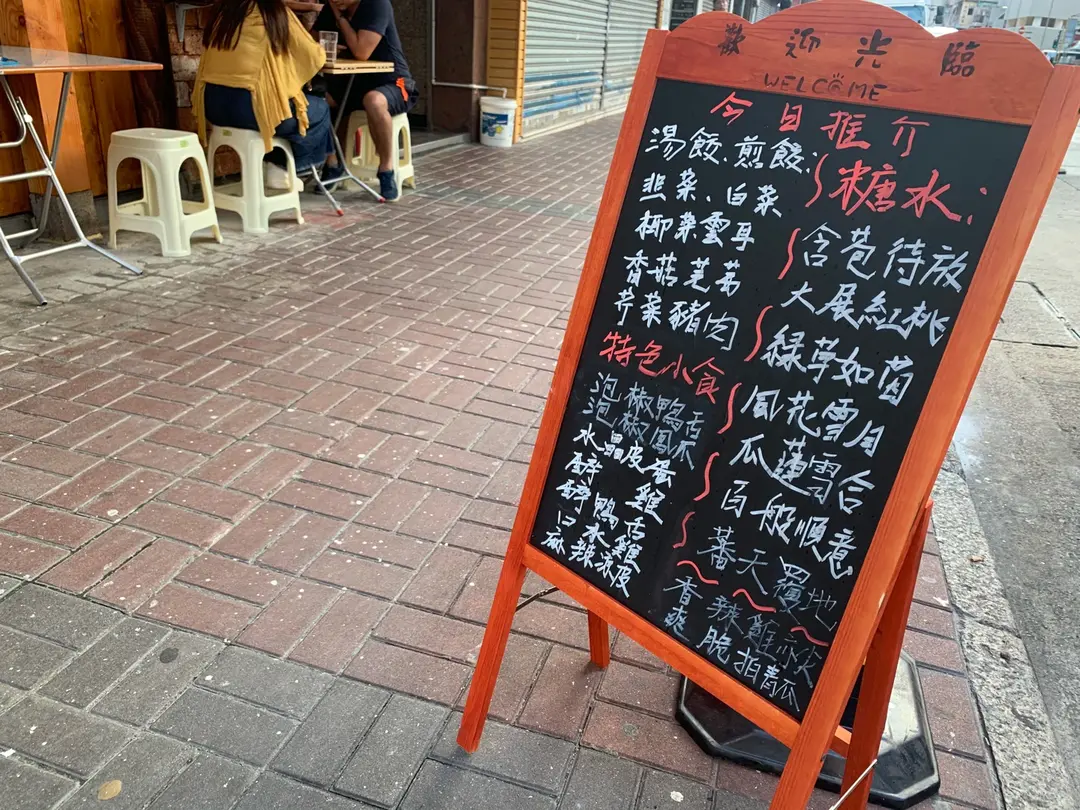 歡迎光臨
WELCOME
今日推介
湯餃.煎餃:
韭菜、白菜
椰菜雲耳
香菇芫茜
芹菜豬肉
特色小食
泡椒鴨舌
泡椒鳳爪
水晶皮蛋
醉雞
醉鴨舌
口水雞
麻辣涼皮
糖水:
含苞待放
大展紅桃
綠草如茵
風花雪月
瓜蓮雪合
百般順意
蕃天覆地
香辣雞
爽脆拍青瓜